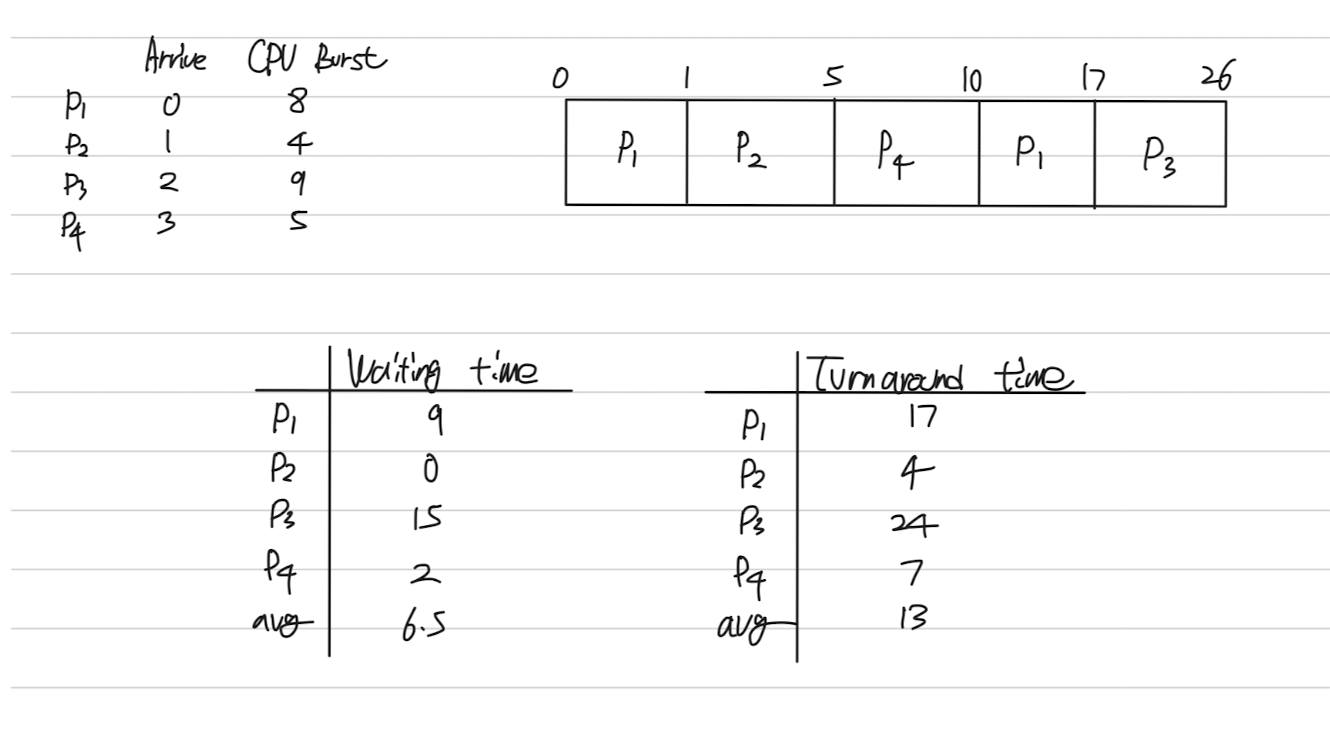 Arrive CPU Burst
P1 0 8
P2 1 4
P3 2 9
P4 3 5
0 1 5 10 17 26
P1 P2 P4 P1 P3
Waiting time
P1 9
P2 0
P3 15
P4 2
avg 6.5
Turnaround time
P1 17
P2 4
P3 24
P4 7
avg 13